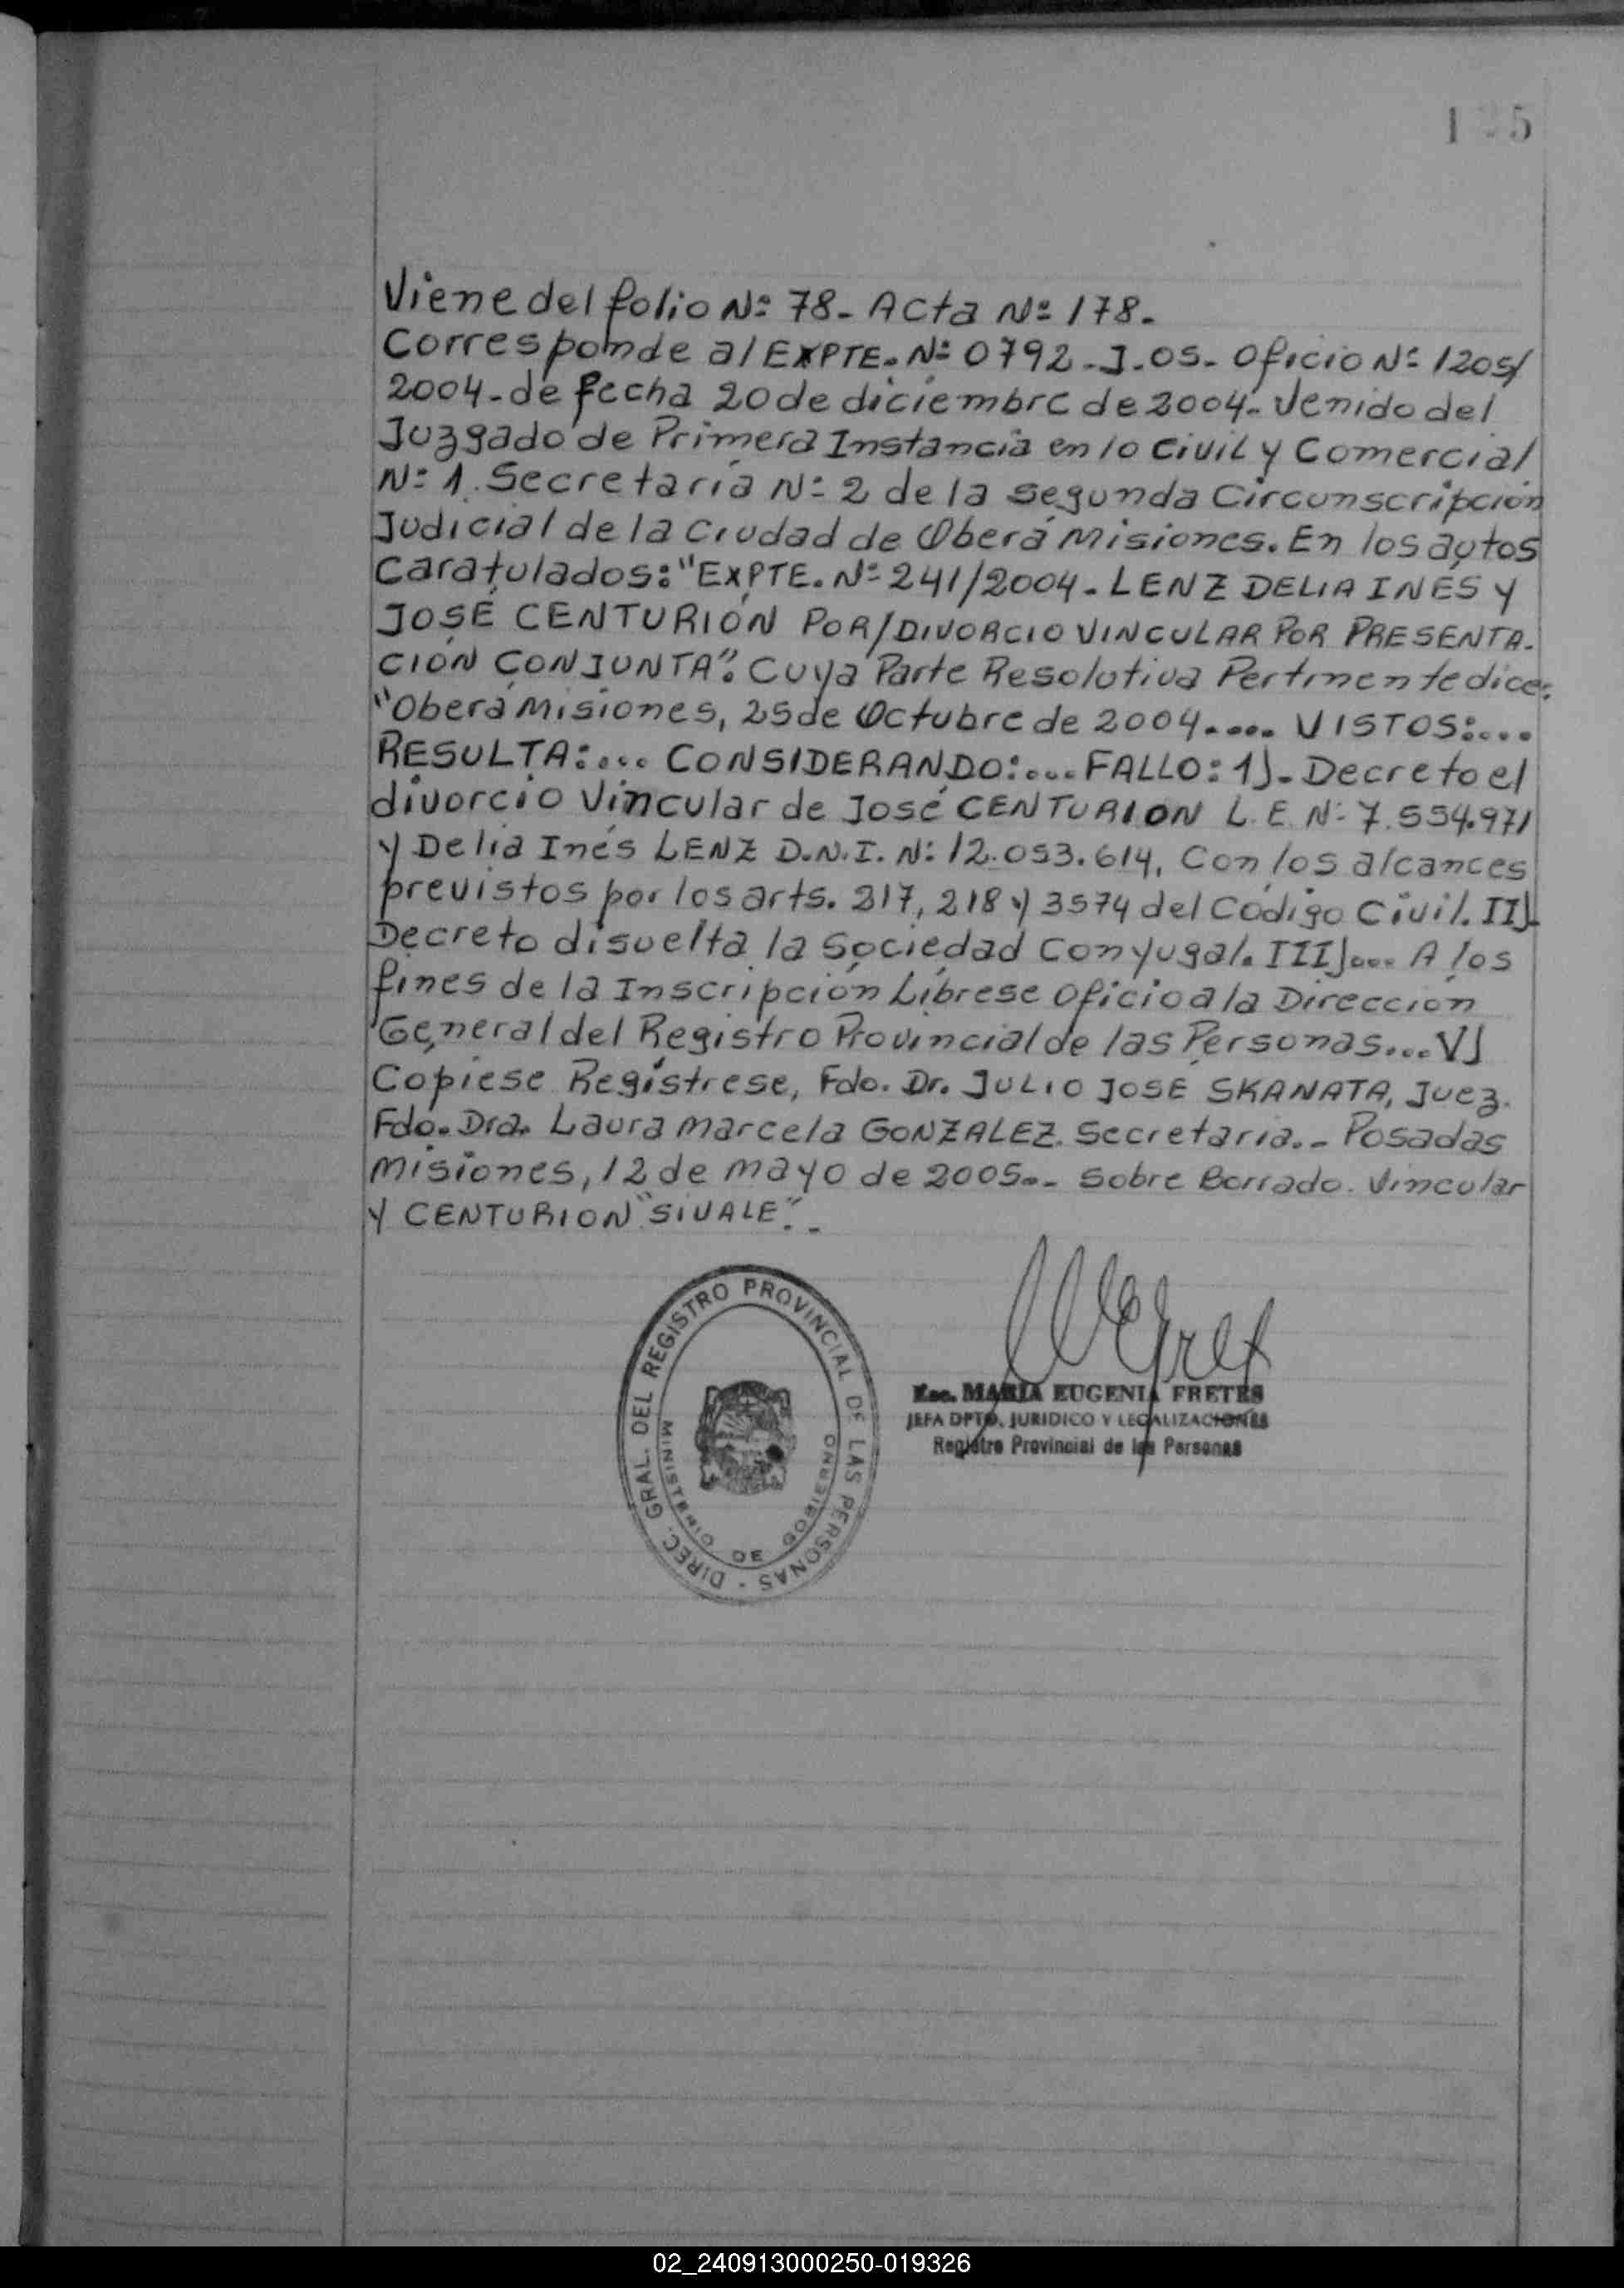 Viene del folio Nº 78- Acta Nº 178-
Corresponde al EXPTE. Nº 0792-J-05- Oficio Nº 1205/
2004-de fecha 20 de diciembre de 2004- Venido del
Juzgado de Primera Instancia en lo Civil y Comercial
Nº 1. Secretaría Nº 2 de la Segunda Circunscripción
Judicial de la Ciudad de Oberá Misiones. En los autos
Caratulados: "EXPTE. Nº 241/2004- LENZ DELIA INÉS y
JOSÉ CENTURIÓN POR/DIVORCIO VINCULAR POR PRESENTA-
CIÓN CONJUNTA". Cuya Parte Resolutiva Pertinente dice:
"Oberá Misiones, 25 de Octubre de 2004..... VISTOS:....
RESULTA:... CONSIDERANDO:... FALLO: 1)- Decreto el
divorcio Vincular de José CENTURION L.E. Nº 7.554.971
y Delia Inés LENZ D.N.I. Nº 12.053.614, Con los alcances
previstos por los arts. 217, 218 y 3574 del Código Civil. II)-
Decreto disuelta la Sociedad Conyugal. III)... A los
fines de la Inscripción Líbrese Oficio a la Dirección
General del Registro Provincial de las Personas.... V)
Cópiese Regístrese, Fdo. Dr. JULIO JOSÉ SKANATA, Juez.
Fdo. Dra. Laura Marcela GONZALEZ. Secretaria.- Posadas
Misiones, 12 de mayo de 2005.- Sobre Borrado. Vincular
Y CENTURION "SIVALE".-
DIREC. GRAL. DEL REGISTRO PROVINCIAL DE LAS PERSONAS -
MINISTERIO DE GOBIERNO
Esc. MARIA EUGENIA FRETES
JEFA DPTO. JURIDICO Y LEGALIZACIONES
Registro Provincial de las Personas
02_240913000250-019326